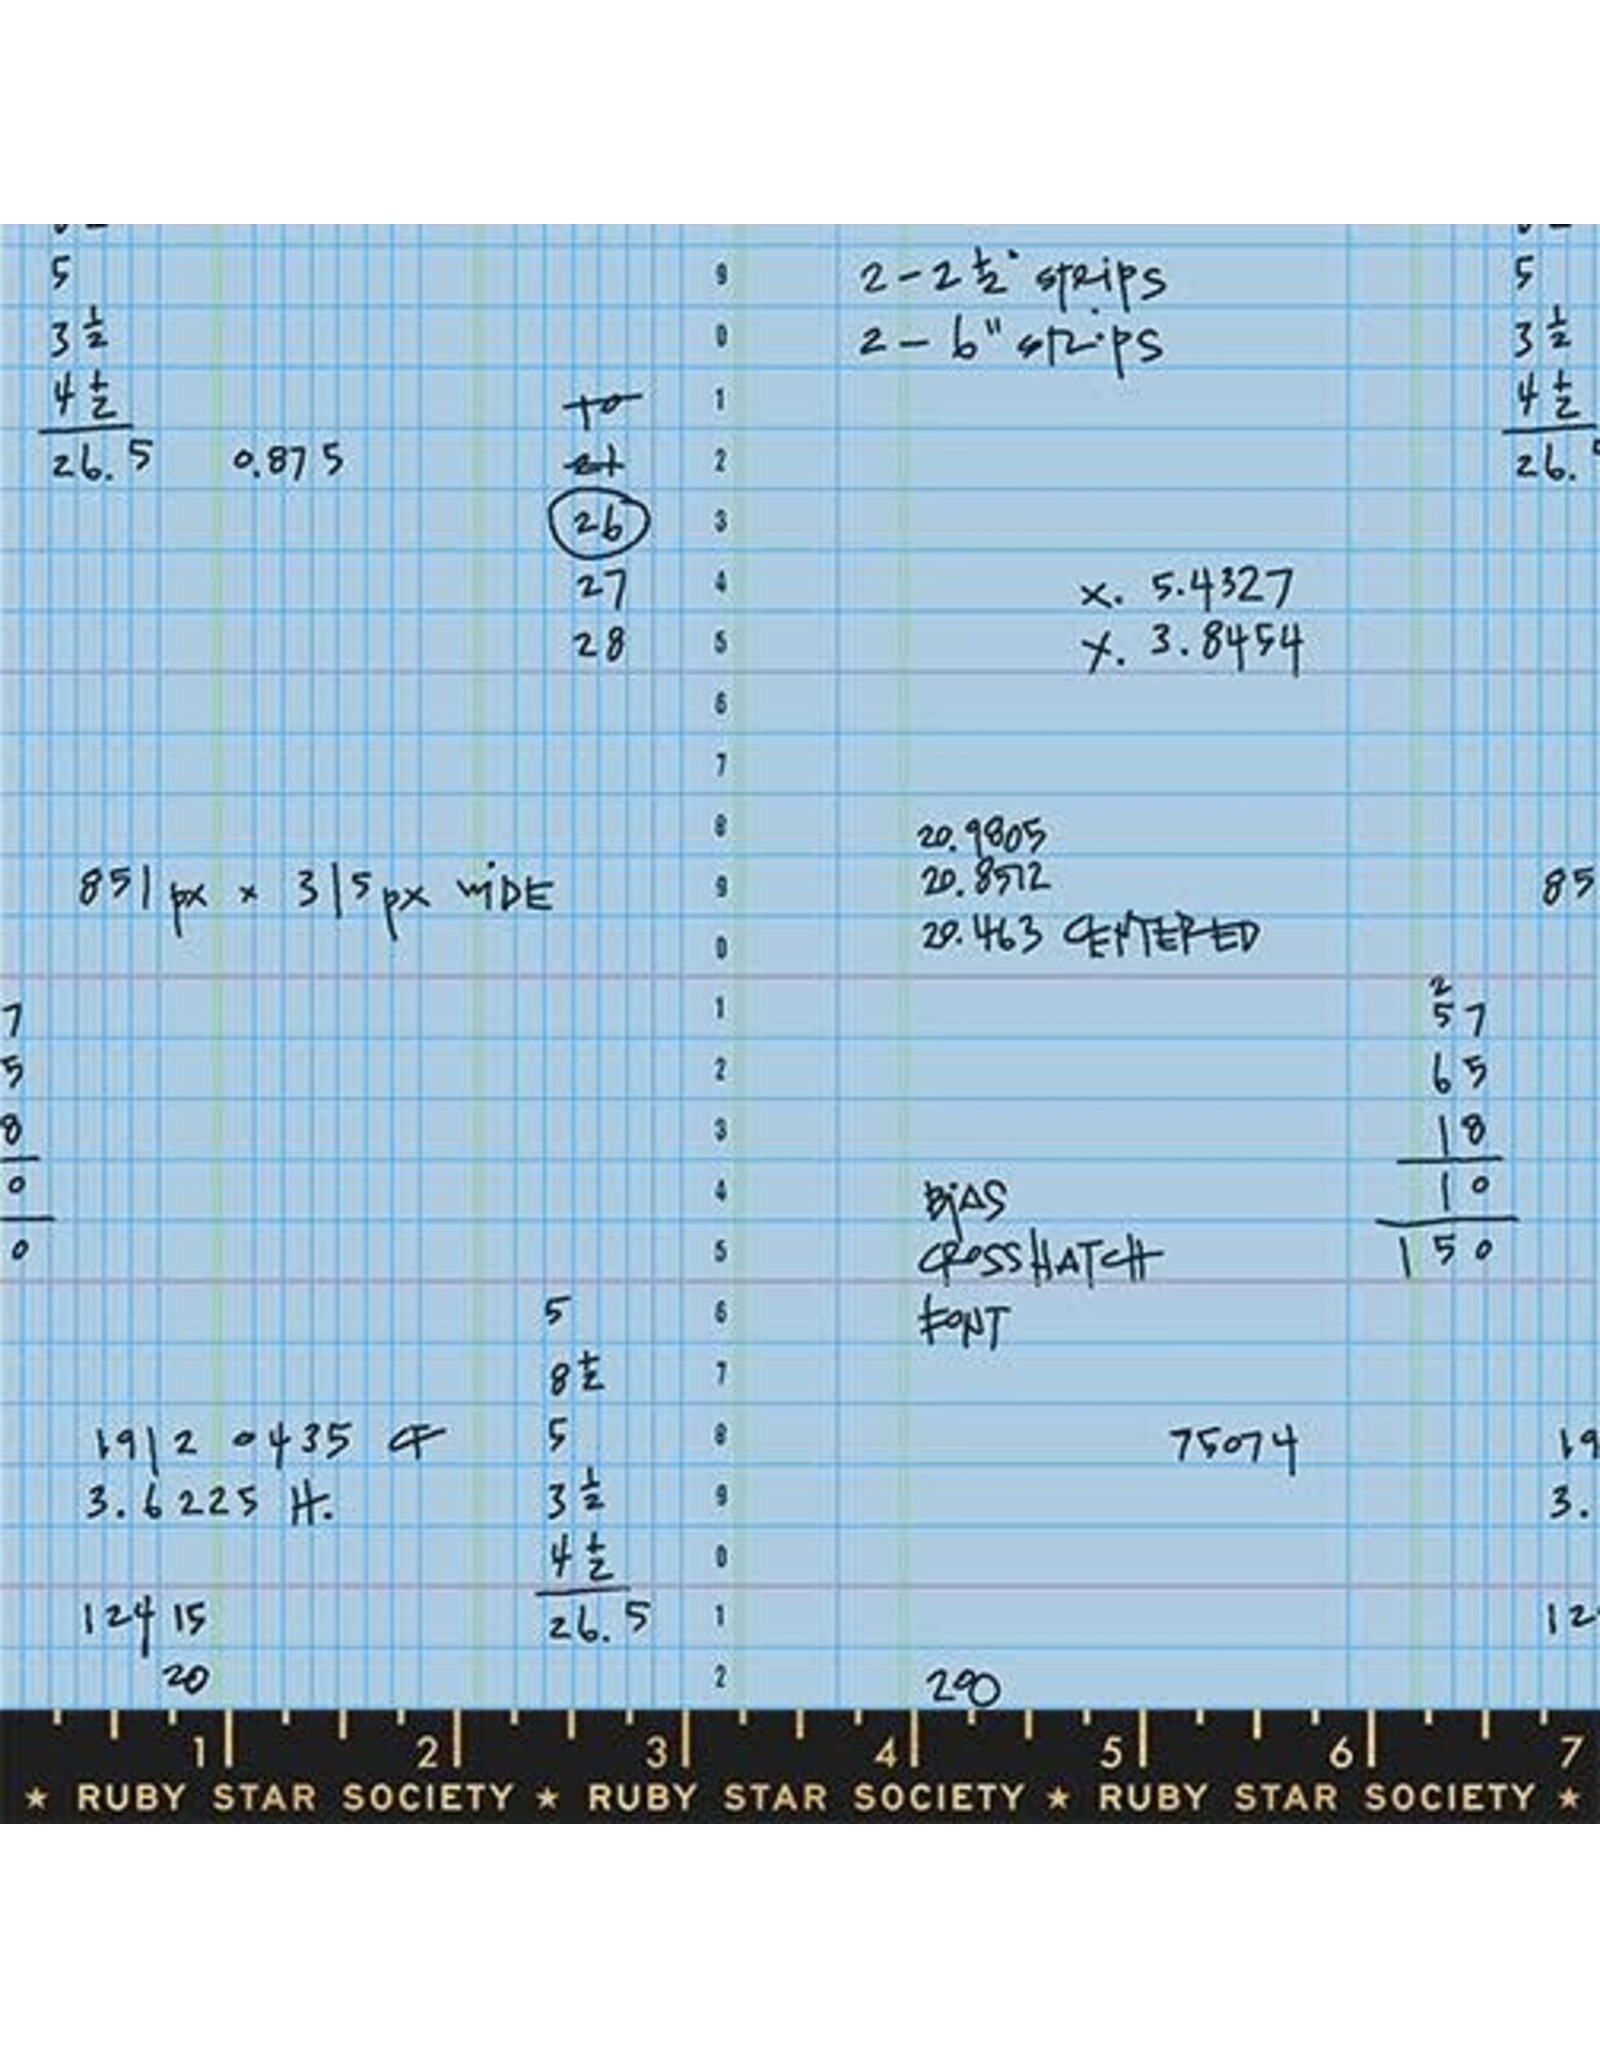 5
3 1/2
4 1/2
26.5 0.875
26
27
28
851 px x 315 px WIDE
7
5
8
0
0
5
8 1/2
5
3 1/2
4 1/2
26.5
1912 0435
3.6225 H.
124 15
20
9
0
1
2
3
4
5
6
7
8
9
0
1
2
3
4
5
6
7
8
9
0
1
2
2 - 2 1/2" strips
2 - 6" strips
x. 5.4327
y. 3.8454
20.9805
20.8572
20.463 CENTERED
BiAS
CROSSHATCH
FONT
75074
290
5
3 1/2
4 1/2
26.
85
2
57
65
18
10
150
19
3.
12
1 2 3 4 5 6 7
★ RUBY STAR SOCIETY ★ RUBY STAR SOCIETY ★ RUBY STAR SOCIETY ★